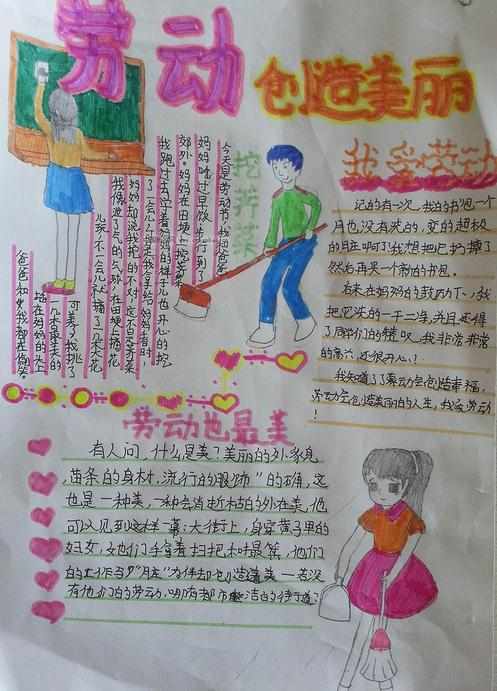 劳动
创造美丽
挖荠菜
今天是劳动节,我和爸爸
妈妈吃过早饭,步行到了
郊外。妈妈在田埂上挖荠菜
我跑过去学着妈妈的样子儿也开心的挖
了一会儿,可是我拿给妈妈看时,
妈妈却说我挖的不对,这不是荠菜
我像泄了气的气球,在田埂上摘花
儿玩,不一会儿就摘了几朵大花
可美了,我挑了
几朵漂亮的
插在妈妈的头上
爸爸和我都在偷笑
我爱劳动
记的有一次,我的书包一个
月也没有洗的,变的超极
的脏啊!我想把它扔掉了
然后再买一个新的书包。
后来在妈妈的鼓励下,我
把它洗的一干二净,并且还得
了同学们的赞叹,我非常非常
的高兴还很开心!
我知道了劳动会创造幸福,
劳动会创造美丽的人生,我爱劳动
!
劳动也最美
有人问,什么是美?美丽的外家息
,苗条的身材,流行的服饰"的确,这
也是一种美,一种会消逝的外在美,他
可以见到这样一幕:大街上,身穿
妇女,她们手拿着扫把和,他们
的工作与"脏"为伴却创造美一若没
有他们的劳动,哪有都市洁的街道?